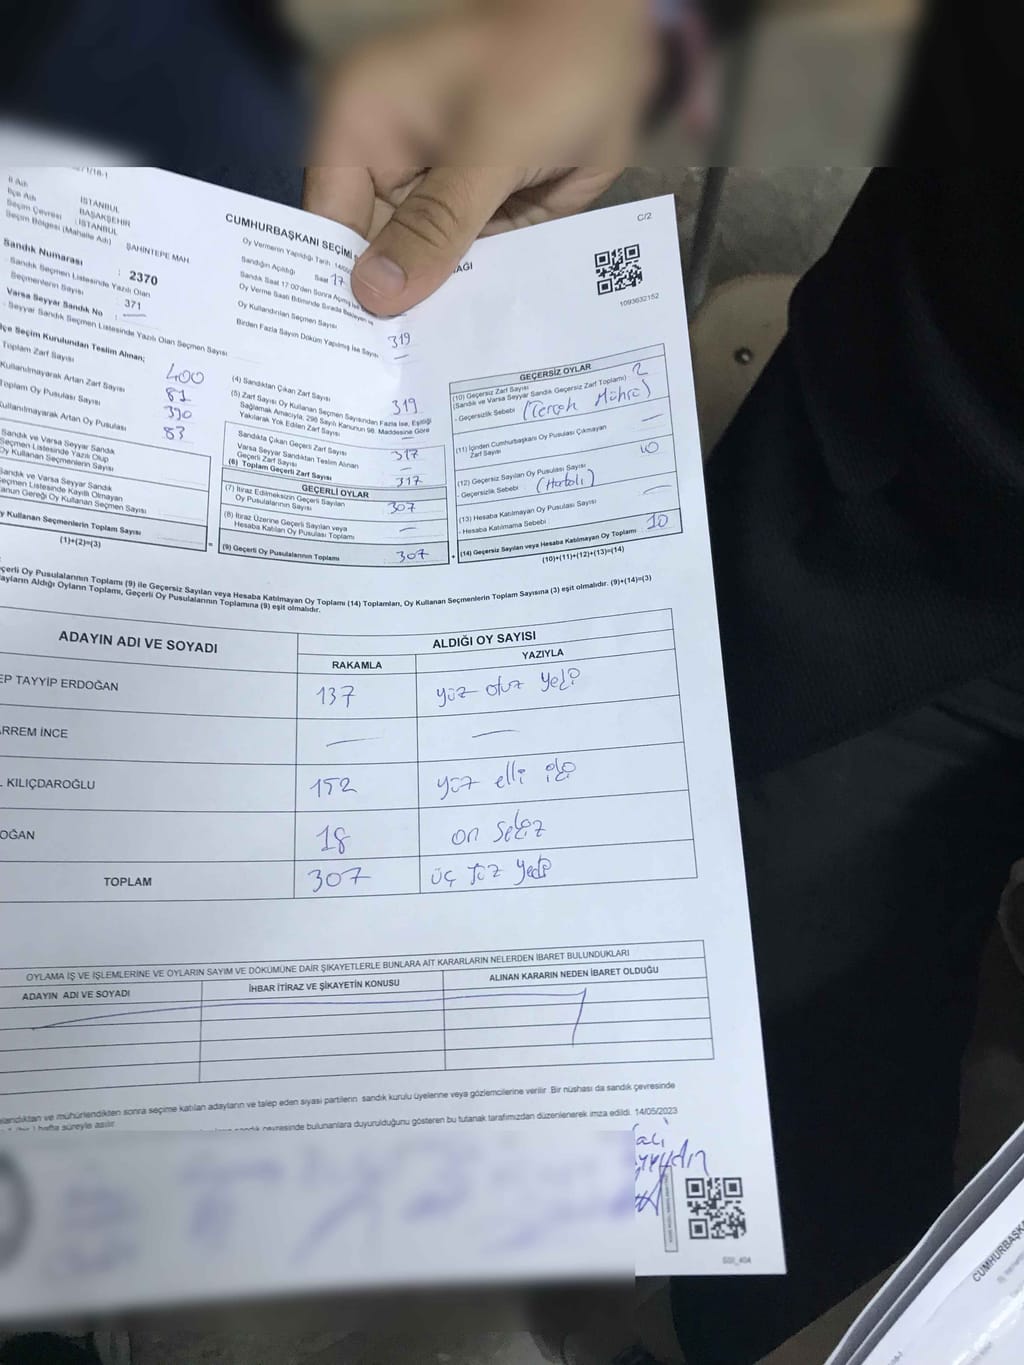 İl Adı İSTANBUL
İlçe Adı BAŞAKŞEHİR
Seçim Çevresi : İSTANBUL
Seçim Bölgesi (Mahalle Adı) ŞAHİNTEPE MAH.
Sandık Numarası : 2370
Sandık Seçmen Listesinde Yazılı Olan
Seçmenlerin Sayısı : 371
Varsa Seyyar Sandık No :
Seyyar Sandık Seçmen Listesinde Yazılı Olan Seçmen Sayısı
İlçe Seçim Kurulundan Teslim Alınan;
Toplam Zarf Sayısı 400
Kullanılmayarak Artan Zarf Sayısı 81
Toplam Oy Pusulası Sayısı 390
Kullanılmayarak Artan Oy Pusulası 83
Sandık ve Varsa Seyyar Sandık
Seçmen Listesinde Yazılı Olup
Oy Kullanan Seçmenlerin Sayısı
Sandık ve Varsa Seyyar Sandık
Seçmen Listesinde Kayıtlı Olmayan
Kanun Gereği Oy Kullanan Seçmen Sayısı
Oy Kullanan Seçmenlerin Toplam Sayısı =
(1)+(2)=(3)
CUMHURBAŞKANI SEÇİMİ
C/2
1093632152
Oy Vermenin Yapıldığı Tarih
Sandığın Açıldığı Saat 17
Sandık Saat 17:00'den Sonra Açılmış İse
Oy Verme Saati Bitiminde Sırada Bekleyen
Oy Kullandırılan Seçmen Sayısı 319
Birden Fazla Sayım Döküm Yapılmış İse Sayısı —
(4) Sandıktan Çıkan Zarf Sayısı 319
(5) Zarf Sayısı Oy Kullanan Seçmen Sayısından Fazla İse, Eşitliği
Sağlamak Amacıyla, 298 Sayılı Kanunun 98. Maddesine Göre
Yakılarak Yok Edilen Zarf Sayısı —
Sandıkta Çıkan Geçerli Zarf Sayısı 317
Varsa Seyyar Sandıktan Teslim Alınan
Geçerli Zarf Sayısı —
(6) Toplam Geçerli Zarf Sayısı 317
GEÇERLİ OYLAR
(7) İtiraz Edilmeksizin Geçerli Sayılan
Oy Pusulalarının Sayısı 307
(8) İtiraz Üzerine Geçerli Sayılan veya
Hesaba Katılan Oy Pusulası Toplamı —
(9) Geçerli Oy Pusulalarının Toplamı 307 +
GEÇERSİZ OYLAR
(10) Geçersiz Zarf Sayısı 2
(Sandık ve Varsa Seyyar Sandık Geçersiz Zarf Toplamı)
- Geçersizlik Sebebi (Tercih Mührü)
(11) İçinden Cumhurbaşkanı Oy Pusulası Çıkmayan
Zarf Sayısı —
(12) Geçersiz Sayılan Oy Pusulası Sayısı 10
- Geçersizlik Sebebi (Hatalı)
(13) Hesaba Katılmayan Oy Pusulası Sayısı —
- Hesaba Katılmama Sebebi
(14) Geçersiz Sayılan veya Hesaba Katılmayan Oy Toplamı 10
(10)+(11)+(12)+(13)=(14)
Geçerli Oy Pusulalarının Toplamı (9) ile Geçersiz Sayılan veya Hesaba Katılmayan Oy Toplamı (14) Toplamları, Oy Kullanan Seçmenlerin Toplam Sayısına (3) eşit olmalıdır. (9)+(14)=(3)
Adayların Aldığı Oyların Toplamı, Geçerli Oy Pusulalarının Toplamına (9) eşit olmalıdır.
ADAYIN ADI VE SOYADI ALDIĞI OY SAYISI
RAKAMLA YAZIYLA
EP TAYYİP ERDOĞAN 137 yüz otuz yedi
ARREM İNCE — —
KILIÇDAROĞLU 152 yüz elli iki
OĞAN 18 on sekiz
TOPLAM 307 üç yüz yedi
OYLAMA İŞ VE İŞLEMLERİNE VE OYLARIN SAYIM VE DÖKÜMÜNE DAİR ŞİKAYETLERLE BUNLARA AİT KARARLARIN NELERDEN İBARET BULUNDUKLARI
ADAYIN ADI VE SOYADI İHBAR İTİRAZ VE ŞİKAYETİN KONUSU ALINAN KARARIN NEDEN İBARET OLDUĞU
landıktan ve mühürlendikten sonra seçime katılan adayların ve talep eden siyasi partilerin sandık kurulu üyelerine veya gözlemcilerine verilir. Bir nüshası da sandık çevresinde
hafta süreyle asılır.
sandık çevresinde bulunanlara duyurulduğunu gösteren bu tutanak tarafımızdan düzenlenerek imza edildi. 14/05/2023
CUMHURBAŞK